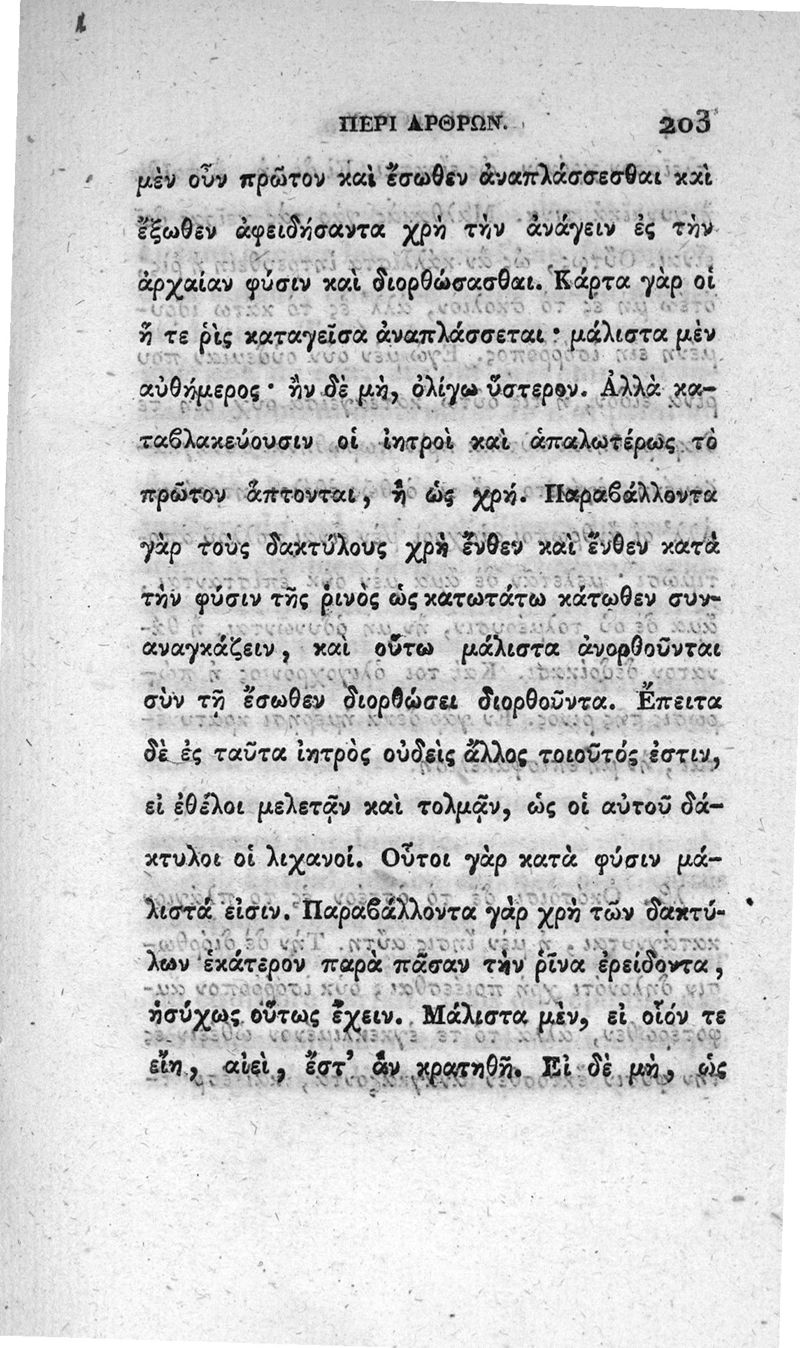 ΠΕΡΙ ΑΡΘΡΩΝ. 203
μὲν οὖν πρῶτον καὶ ἔσωθεν ἀναπλάσσεσθαι καὶ
ἔξωθεν ἀφειδήσαντα χρὴ τὴν ἀνάγειν ἐς τὴν
ἀρχαίαν φύσιν καὶ διορθώσασθαι. Κάρτα γὰρ οἱ
ἥ τε ῥὶς καταγεῖσα ἀναπλάσσεται · μάλιστα μὲν
αὐθήμερος · ἢν δὲ μὴ, ὀλίγω ὕστερον. Ἀλλὰ κα-
ταϐλακεύουσιν οἱ ἰητροὶ καὶ ἁπαλωτέρως τὸ
πρῶτον ἅπτονται, ἢ ὡς χρή. Παραϐάλλοντα
γὰρ τοὺς δακτύλους χρὴ ἔνθεν καὶ ἔνθεν κατὰ
τὴν φύσιν τῆς ῥινὸς ὡς κατωτάτω κάτωθεν συν-
αναγκάζειν, καὶ οὕτω μάλιστα ἀνορθοῦνται
σὺν τῇ ἔσωθεν διορθώσει διορθοῦντα. Ἔπειτα
δὲ ἐς ταῦτα ἰητρὸς οὐδεὶς ἄλλος τοιοῦτός ἐστιν,
εἰ ἐθέλοι μελετᾷν καὶ τολμᾷν, ὡς οἱ αὐτοῦ δά-
κτυλοι οἱ λιχανοί. Οὗτοι γὰρ κατὰ φύσιν μά-
λιστά εἰσιν. Παραϐάλλοντα γὰρ χρὴ τῶν δακτύ-
λων ἑκάτερον παρὰ πᾶσαν τὴν ῥῖνα ἐρείδοντα,
ἡσύχως οὕτως ἔχειν. Μάλιστα μὲν, εἰ οἷόν τε
εἴη, αἰεὶ, ἔστ’ ἂν κρατηθῇ. Εἰ δὲ μὴ, ὡς